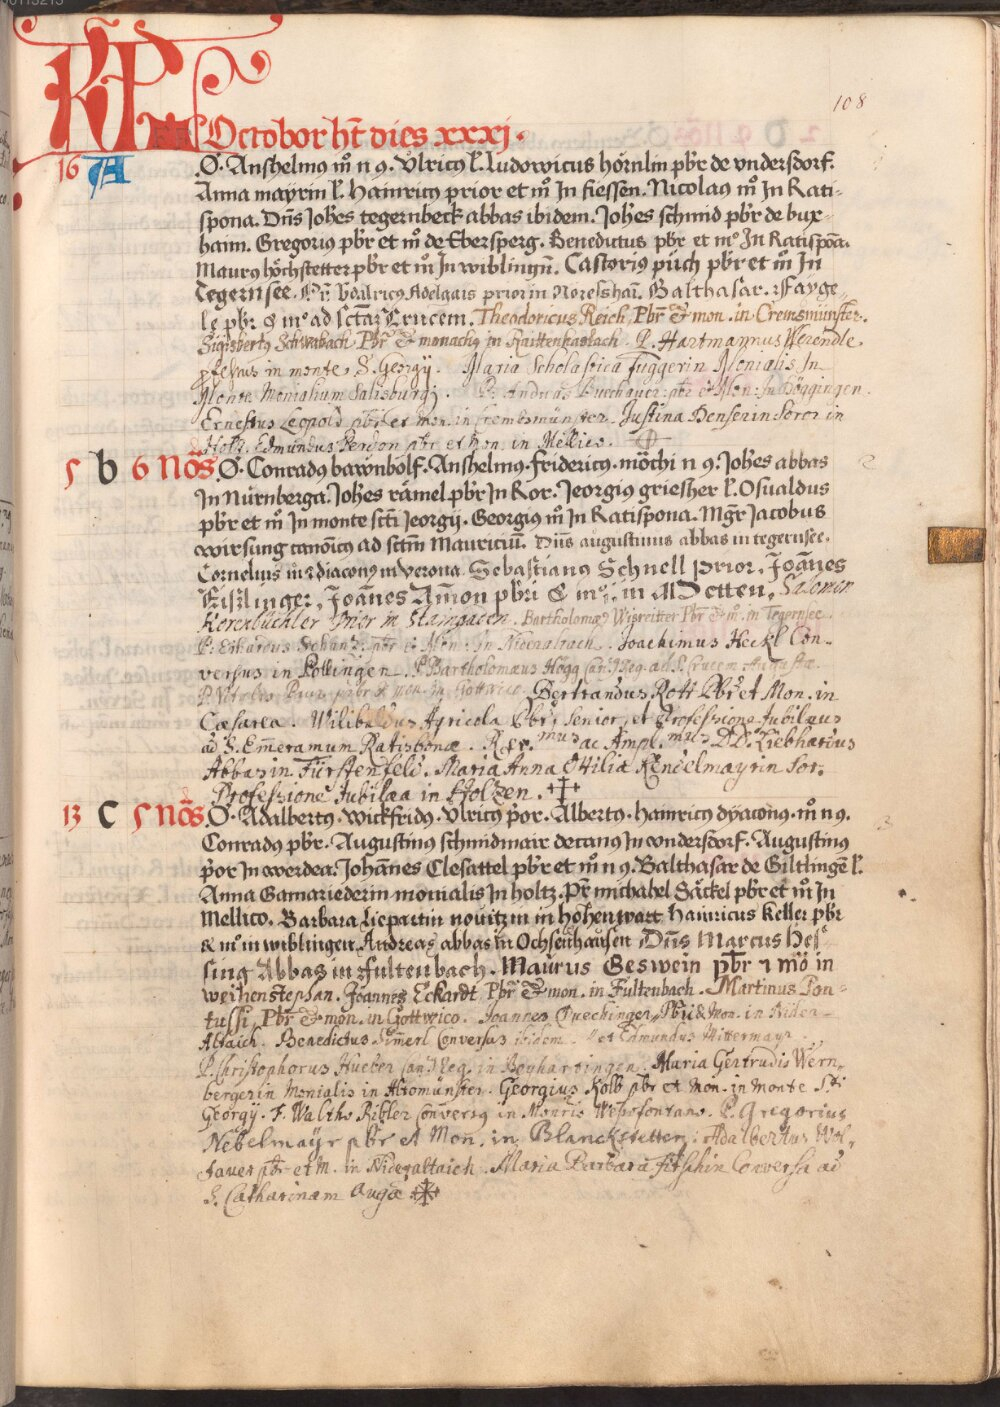 108
KL Octobor ht dies xxxj.
16 A O. Anshelmus m n 9. Ulricus l. Ludowicus hörnlin pbr de vndersdorf.
Anna mayrin l. Hainricus prior et m In fiessen. Nicolaus m In Rati-
spona. Dns Johes tegernbeck abbas ibidem. Johes schmid pbr de bux-
haim. Gregorius pbr et m de Ebersperg. Benedictus pbr et mo In Ratispoa.
Maurus höchstetter pbr et m In wiblingn. Castorius puch pbr et m In
Tegernsee. Pr vdalricus Adelgais prior in Noresshai. Balthasar. Fayge
le pbr & mo ad sctaz Crucem. Theodoricus Reich, Pbr & mon. in Cremsmünster.
Sigisbertus Schwabach Pbr & monachus in Raittenhaslach. P. Hartmannus Werendle
pfessus in monte S. Georgij. Maria Scholastica Fuggerin Monialis In
Monte Monialium Salisburgi. P. Andreas pbr et Mon: In Döggingen.
Ernestus Leopold pbr et mon. in Cremosmünster. Justina Denserin Soror in
Holtz. Edmundus pbr et Mon. in Mellico.
5 b 6 Nos O. Conradus bawnbolf. Anshelmus. fridericus. mochi n 9. Johes abbas
In Nürnberga. Johes rämel pbr In Ror. Jeorgius griesher l. Osualdus
pbr et m In monte scti Jeorgij. Georgius m In Ratispona. Mgr Jacobus
wirsung canoicus ad sctm Mauriciu. Dns augustinus abbas in tegernsee.
Cornelius m & diaconus in verona. Sebastianus Schnell prior, Joannes
Eislinger, Joannes Amon pbri & moi in Metten. Salomon
Kerenbüchler Prior in Stamsacen. Bartholomaeus Wisreitter Pbr & m. in Tegernsee.
P. Erhardus pbr & Mon: in Nideraltach. Joachimus Heckl Con-
versus in Pollingen. P. Bartholomaeus Högg Can. Reg. ad S. Crucem Augustae.
P. pbr & mon. in Gottwico. Bertrandus Rott Pbr et Mon. in
Caesarea. Wilibaldus Agricola Pbr, Senior, et Professione Jubilaeus
ad S. Emeramum Ratisbonae. Rev.mus ac Ampl.mus D.D. Liebhardus
Abbas in Fürstenfeld. Maria Anna Ottilia Kendelmayrin Sor.
Professione Jubilaea in Holtzen.
13 C 5 Nos O. Adalbertus. wickfridus. Ulricus por. Albertus. Hainricus dyaconus. m n 9.
Conradus pbr. Augustinus schmidmair decanus In vndersdorf. Augustinus
por In werdea. Johannes Clesattel pbr et m n 9. Balthasar de Giltlinge l.
Anna Gamariederin monialis In holtz. Pr michahel Säckel pbr et m In
Mellico. Barbara Liepartin nouitzin in hohenwart. Hainricus Keller pbr
& mo in wiblingen. Andreas abbas in Ochsenhausen. Dns Marcus Hes
sing Abbas in Fultenbach. Maurus Geswein pbr & mo in
weihenstephan. Joannes Eckardt Pbr & mon. in Fultenbach. Martinus Pon-
tussi, Pbr & mon. in Gottwico. Joannes Quechinger Pbr & Mon. in Nider-
Altaich. Benedictus Conversus ibidem. et Edmundus Mittermayr
P. Christophorus Hueber Can. Reg. in Beyhartingen. Maria Gertrudis Wern-
bergerin Monialis in Altomünster. Georgius Kolb pbr et Mon. in monte Sti
Georgij. F. Walthe Ribler Conversus in Monris Wessofontano. P. Gregorius
Nebelmayr pbr et Mon. in Blanckstetten: Adalbertus Wol-
fauer pbr et M. in Nideraltaich. Maria Barbara Conversa ad
S. Catharinam Augae